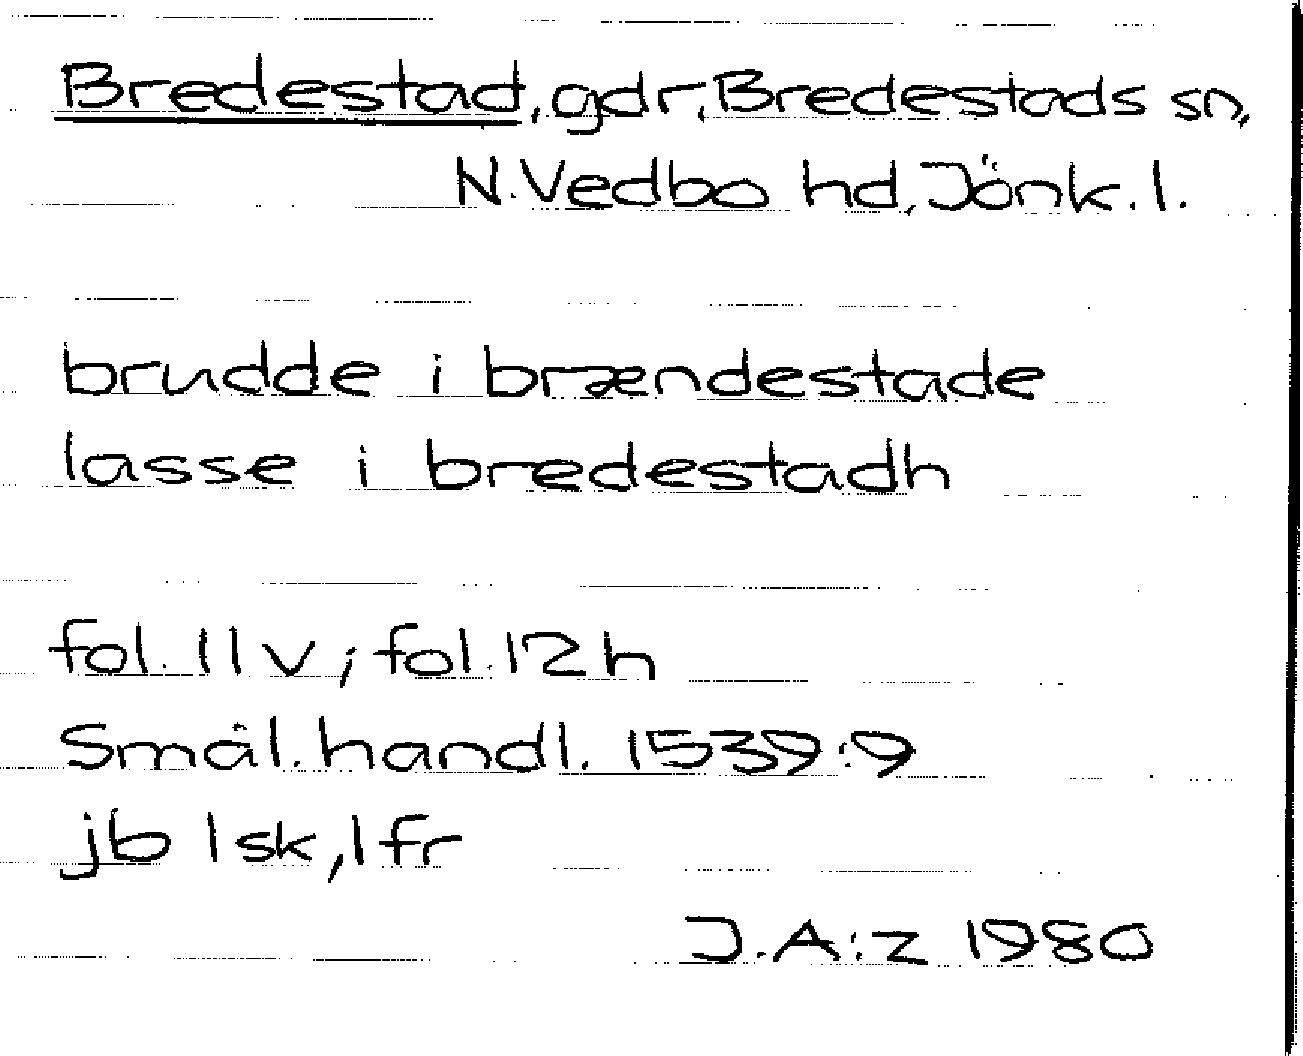 Bredestad, gdr, Bredestads sn,
N. Vedbo hd, Jönk. l.
brudde i brændestade
lasse i bredestadh
fol. 11 v; fol. 12 h
Smål. handl. 1539:9
jb 1 sk, 1 fr
J.A:z 1980